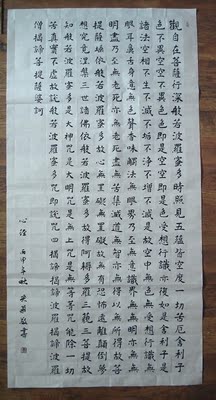 觀自在菩薩行深般若波羅蜜多時照見五蘊皆空度一切苦厄舍利子
色不異空空不異色色即是空空即是色受想行識亦復如是舍利子是
諸法空相不生不滅不垢不淨不增不減是故空中無色無受想行識無
眼耳鼻舌身意無色聲香味觸法無眼界乃至無意識界無無明亦無無
明盡乃至無老死亦無老死盡無苦集滅道無智亦無得以無所得故菩
提薩埵依般若波羅蜜多故心無罣礙無罣礙故無有恐怖遠離顛倒夢
想究竟涅槃三世諸佛依般若波羅蜜多故得阿耨多羅三藐三菩提故
知般若波羅蜜多是大神咒是大明咒是無上咒是無等等咒能除一切
苦真實不虛故說般若波羅蜜多咒即說咒曰揭諦揭諦波羅揭諦波羅
僧揭諦菩提薩婆訶
心經 丙申年秋 敬書